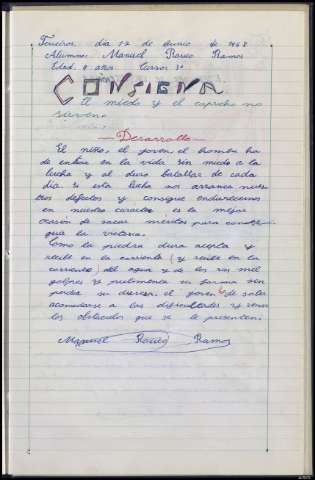 día 12 de Junio de 1968
Alumno: Manuel Ramos
Edad. 8 años. Curso: 3º
CONSIGNA
El miedo y el capricho no
sirven.
— Desarrollo —
El niño, el joven, el hombre ha
de entrar en la vida sin miedo a la
lucha y al duro batallar de cada
dia si esta lucha nos arranca nues
tros defectos y consigue endurecernos
en nuestro caracter es la mejor
ocasión de sacar meritos para
la victoria.
Como la piedra dura acepta y
recibe en la corriente (y recibe en la
corriente) del agua y de los rios mil
golpes y pulimenta su forma sin
perder su dureza, el joven de sabe
acomodarse a las dificultades y vence
los obstaculos que se le presenten.
Manuel Ramos